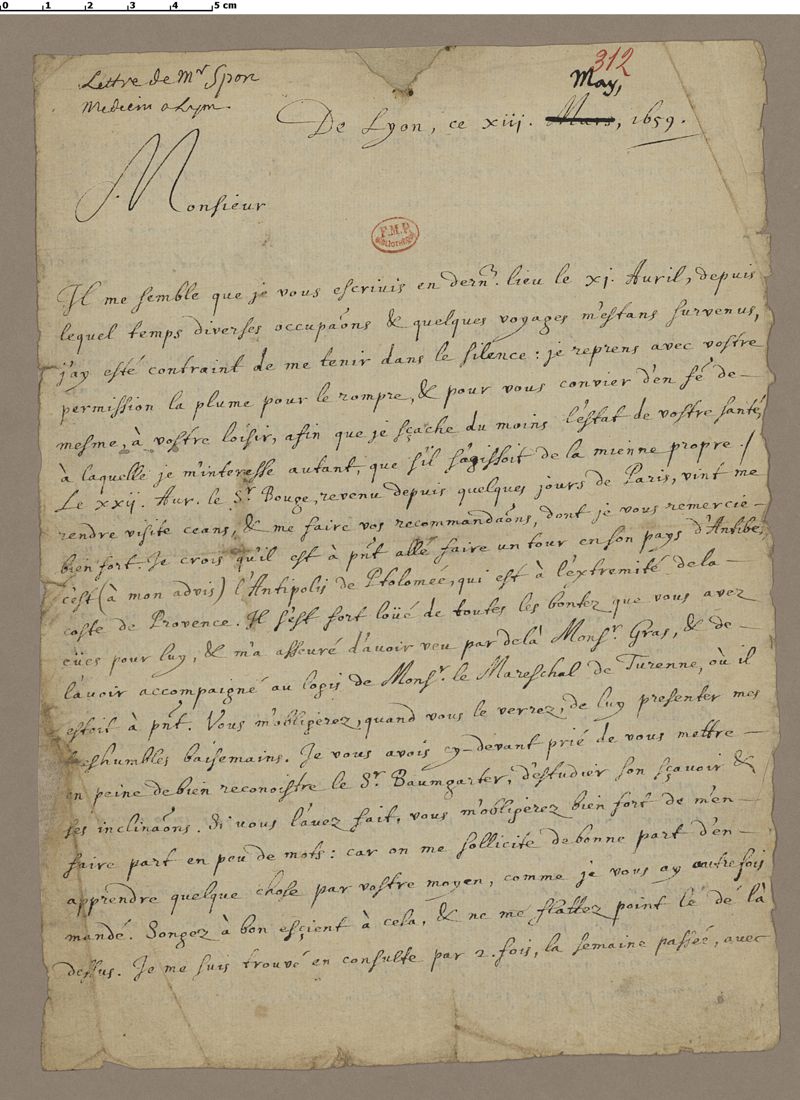 0 1 2 3 4 5 cm
312
Lettre de Mr Spon
Medecin a Lyon
May,
De Lyon, ce xiii. Mars, 1659.
Monsieur
F.M.P.
BIBLIOTHÈQUE
Il me semble que je vous escrivis en dernr. lieu le xj. Avril, depuis
lequel temps diverses occupaõns & quelques voyages m'estans survenus,
j'ay esté contraint de me tenir dans le silence: je reprens avec vostre
permission la plume pour le rompre, & pour vous convier d'en fẽ de-
mesme, à vostre loisir, afin que je sçache du moins l'estat de vostre santé,
à laquelle je m'interesse autant, que s'il s'agissoit de la mienne propre./
Le xxij. Avr. le Sr. Bouge, revenu depuis quelques jours de Paris, vint me
rendre visite ceans, & me faire vos recommandaõns, dont je vous remercie-
bien fort. Je crois qu'il est à pñt allé faire un tour en son pays d'Antibe,
c'est (à mon advis) l'Antipolis de Ptolomee, qui est à l'extremité de la-
coste de Provence. Il s'est fort loüé de toutes les bontez que vous avez
eües pour luy, & m'a asseuré d'avoir veu par delà Monsr. Gras, & de-
l'avoir accompaigné au logis de Monsr. le Mareschal de Turenne, où il
estoit à pñt. Vous m'obligerez, quand vous le verrez, de luy presenter mes
treshumbles baisemains. Je vous avois cy-devant prié de vous mettre-
en peine de bien reconoistre le Sr. Baumgarter, d'estudier son sçavoir &
ses inclinaõns. Si vous l'avez fait, vous m'obligerez bien fort de m'en-
faire part en peu de mots: car on me sollicite de bonne part d'en-
apprendre quelque chose par vostre moyen, comme je vous ay autrefois
mandé. Songez à bon esçient à cela, & ne me flattez point lé dé là
dessus. Je me suis trouvé en consulte par 2. fois, la semaine passée, avec